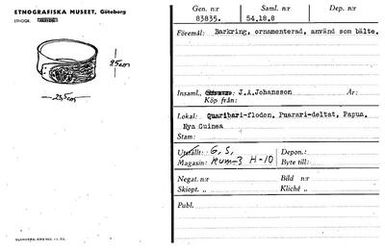 ETNOGRAFISKA MUSEET, Göteborg
85cm
23,5cm
Gen. n:r
83835.
Saml. n:r
54.18.8
Dep. n:r
Föremål: Barkring, ornamenterad, använd som bälte.
Insaml., J.A.Johansson År:
Köp från:
Lokal: Quaribari-floden, Puarari-deltat, Papua,
Nya Guinea
Stam:
Utställt: G.S. Depon.:
Magasin: Rum 3 H-10 Byte till:
Negat. n:r Bild n:r
Skiopt. „ Kliché „
Publ.